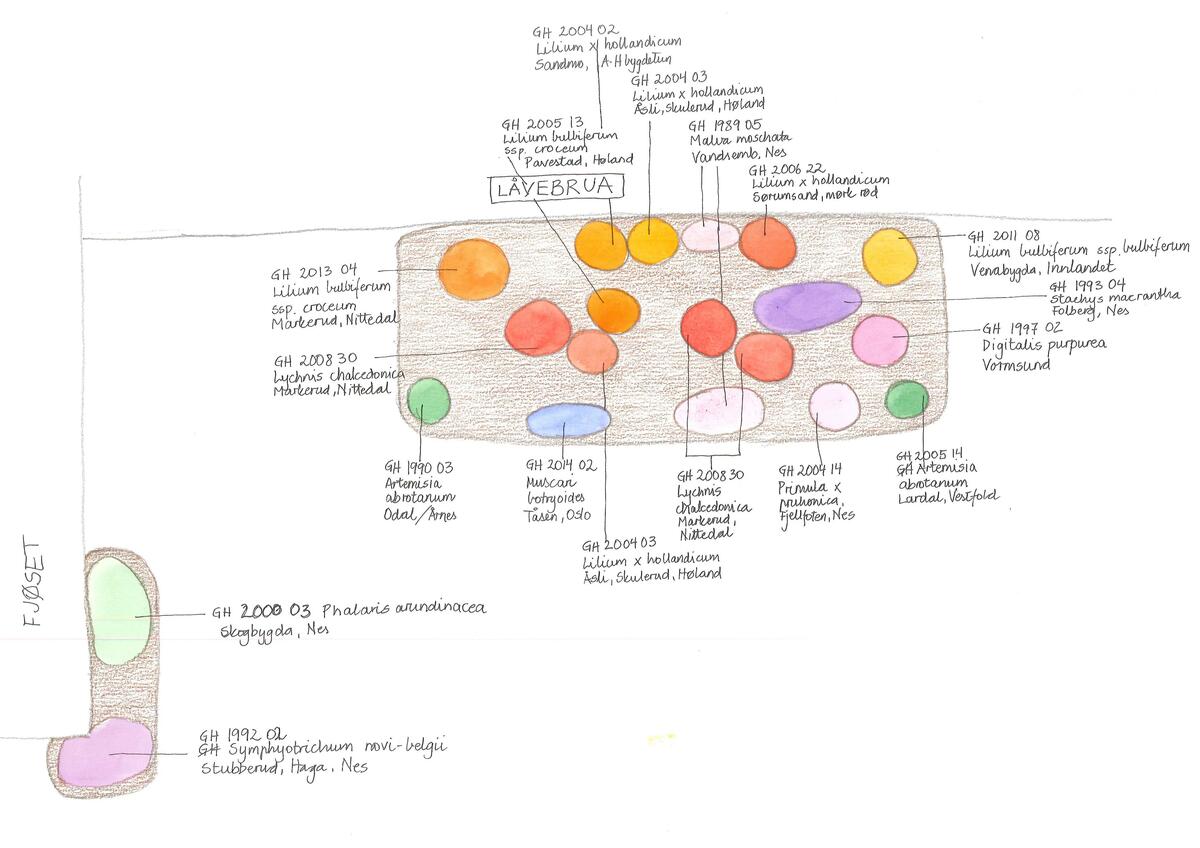 GH 2004 02
Lilium x hollandicum
Sandmo, A-H bygdetun
GH 2004 03
Lilium x hollandicum
Åsli, Skulerud, Høland
GH 2005 13
Lilium bulbiferum
ssp. croceum
Pavestad, Høland
GH 1989 05
Malva moschata
Vandsemb, Nes
GH 2006 22
Lilium x hollandicum
Sørumsand, mørk rød
LÅVEBRUA
GH 2011 08
Lilium bulbiferum ssp. bulbiferum
Venabygda, Innlandet
GH 2013 04
Lilium bulbiferum
ssp. croceum
Markerud, Nittedal
GH 1993 04
Stachys macrantha
Folberg, Nes
GH 1997 02
Digitalis purpurea
Vormsund
GH 2008 30
Lychnis chalcedonica
Markerud, Nittedal
GH 1990 03
Artemisia
abrotanum
Odal/Årnes
GH 2014 02
Muscari
botryoides
Tåsen, Oslo
GH 2008 30
Lychnis
chalcedonica
Markerud,
Nittedal
GH 2004 14
Primula x
pruhonica,
Fjellfoten, Nes
GH 2005 14
GH Artemisia
abrotanum
Lardal, Vestfold
GH 2004 03
Lilium x hollandicum
Åsli, Skulerud, Høland
FJØSET
GH 2000 03 Phalaris arundinacea
Skogbygda, Nes
GH 1992 02
GH Symphyotrichum novi-belgii
Stubberud, Haga, Nes